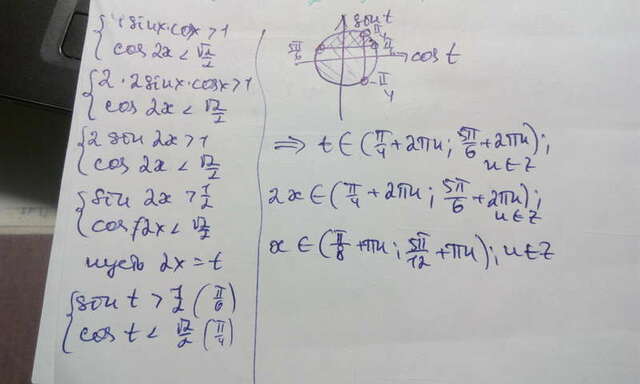 {4 sinx·cosx>1
{cos 2x < √2/2
{2·2sinx·cosx>1
{cos 2x < √2/2
{2 sin 2x>1
{cos 2x < √2/2
{sin 2x > 1/2
{cos 2x < √2/2
пусть 2x = t
{sin t > 1/2 (π/6)
{cos t < √2/2 (π/4)
sin t
π/4
5π/6
π/6
cos t
-π/4
⟹ t ∈ (π/4 + 2πn ; 5π/6 + 2πn);
n∈Z
2x ∈ (π/4 + 2πn ; 5π/6 + 2πn);
n∈Z
x ∈ (π/8 + πn ; 5π/12 + πn); n∈Z